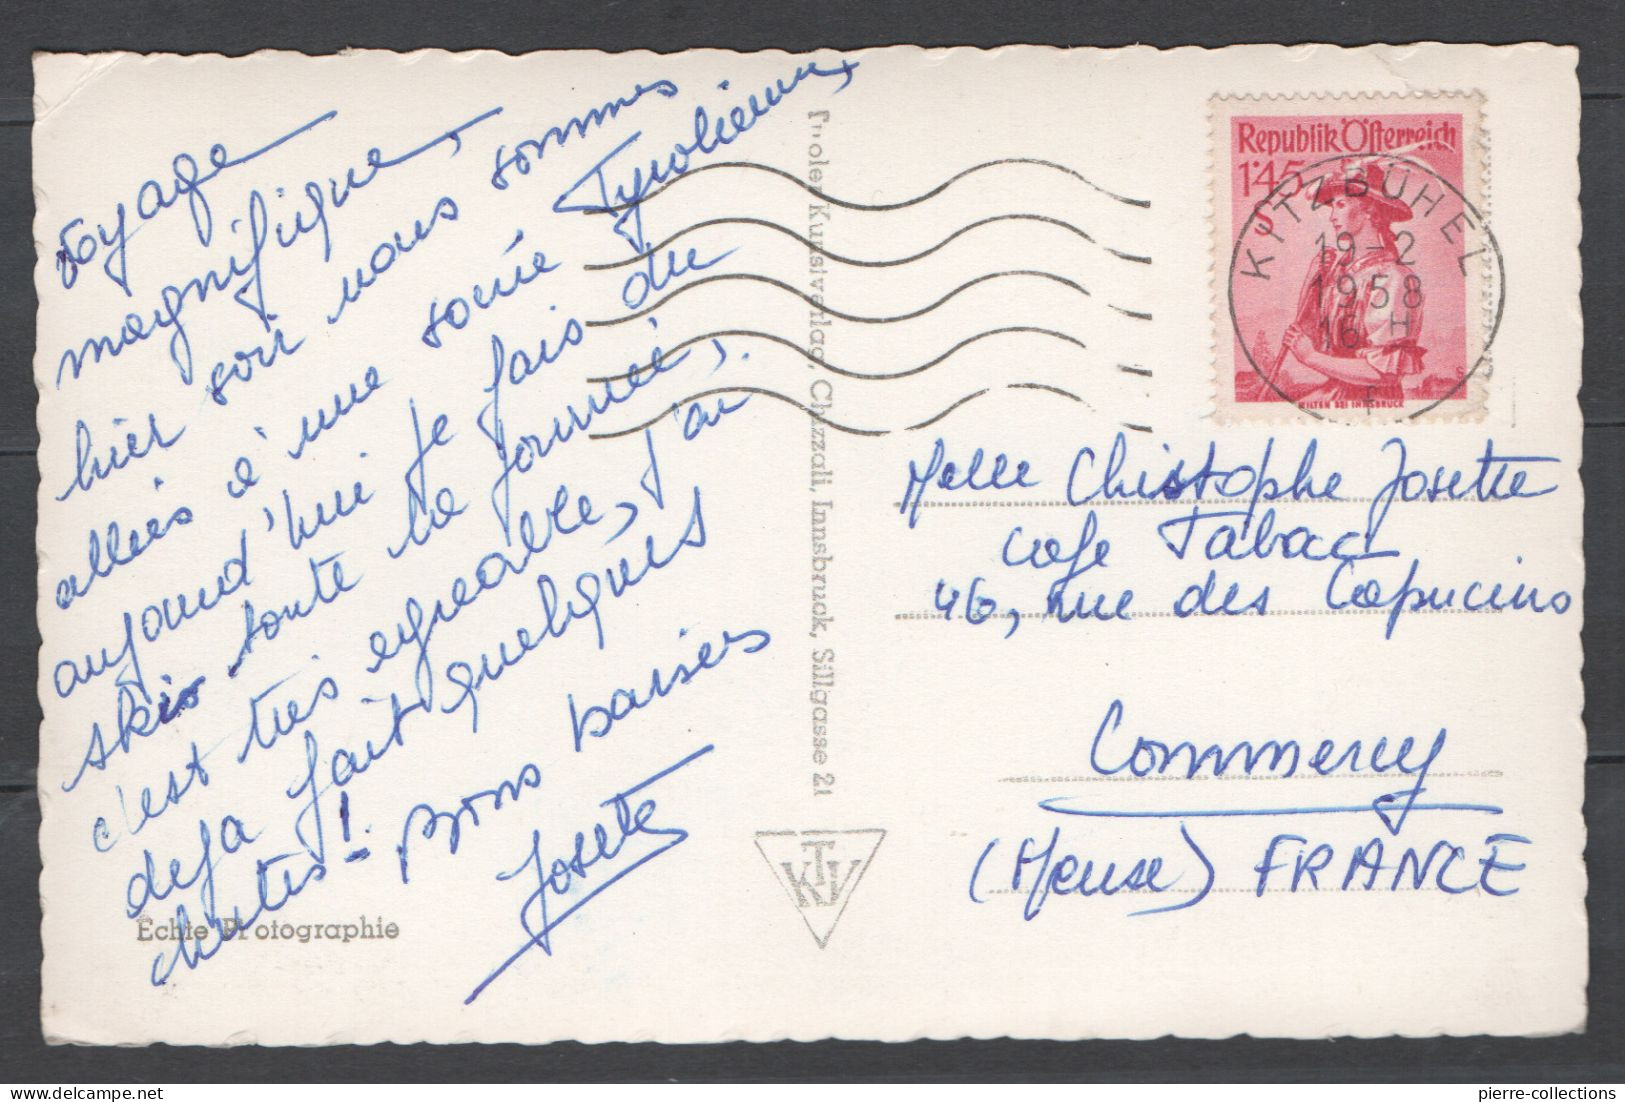 voyage
magnifique,
hier soir nous sommes
alliés à une soirée Tyrolienne,
aujourd'hui je fais du
skis toute la journée,
c'est très agréable, j'ai
deja fait quelques
chutes! Bons baisers
Josette
Echte Photographie
Tiroler Kunstverlag, Chizzali, Innsbruck, Sillgasse 21
KTV
Republik Österreich
1'45
S
WILTEN BEI INNSBRUCK
KITZBÜHEL
19-2
1958
16 H
f
Melle Christophe Josette
Cafe Tabac
46, rue des Capucins
Commercy
(Meuse) FRANCE
pierre-collections